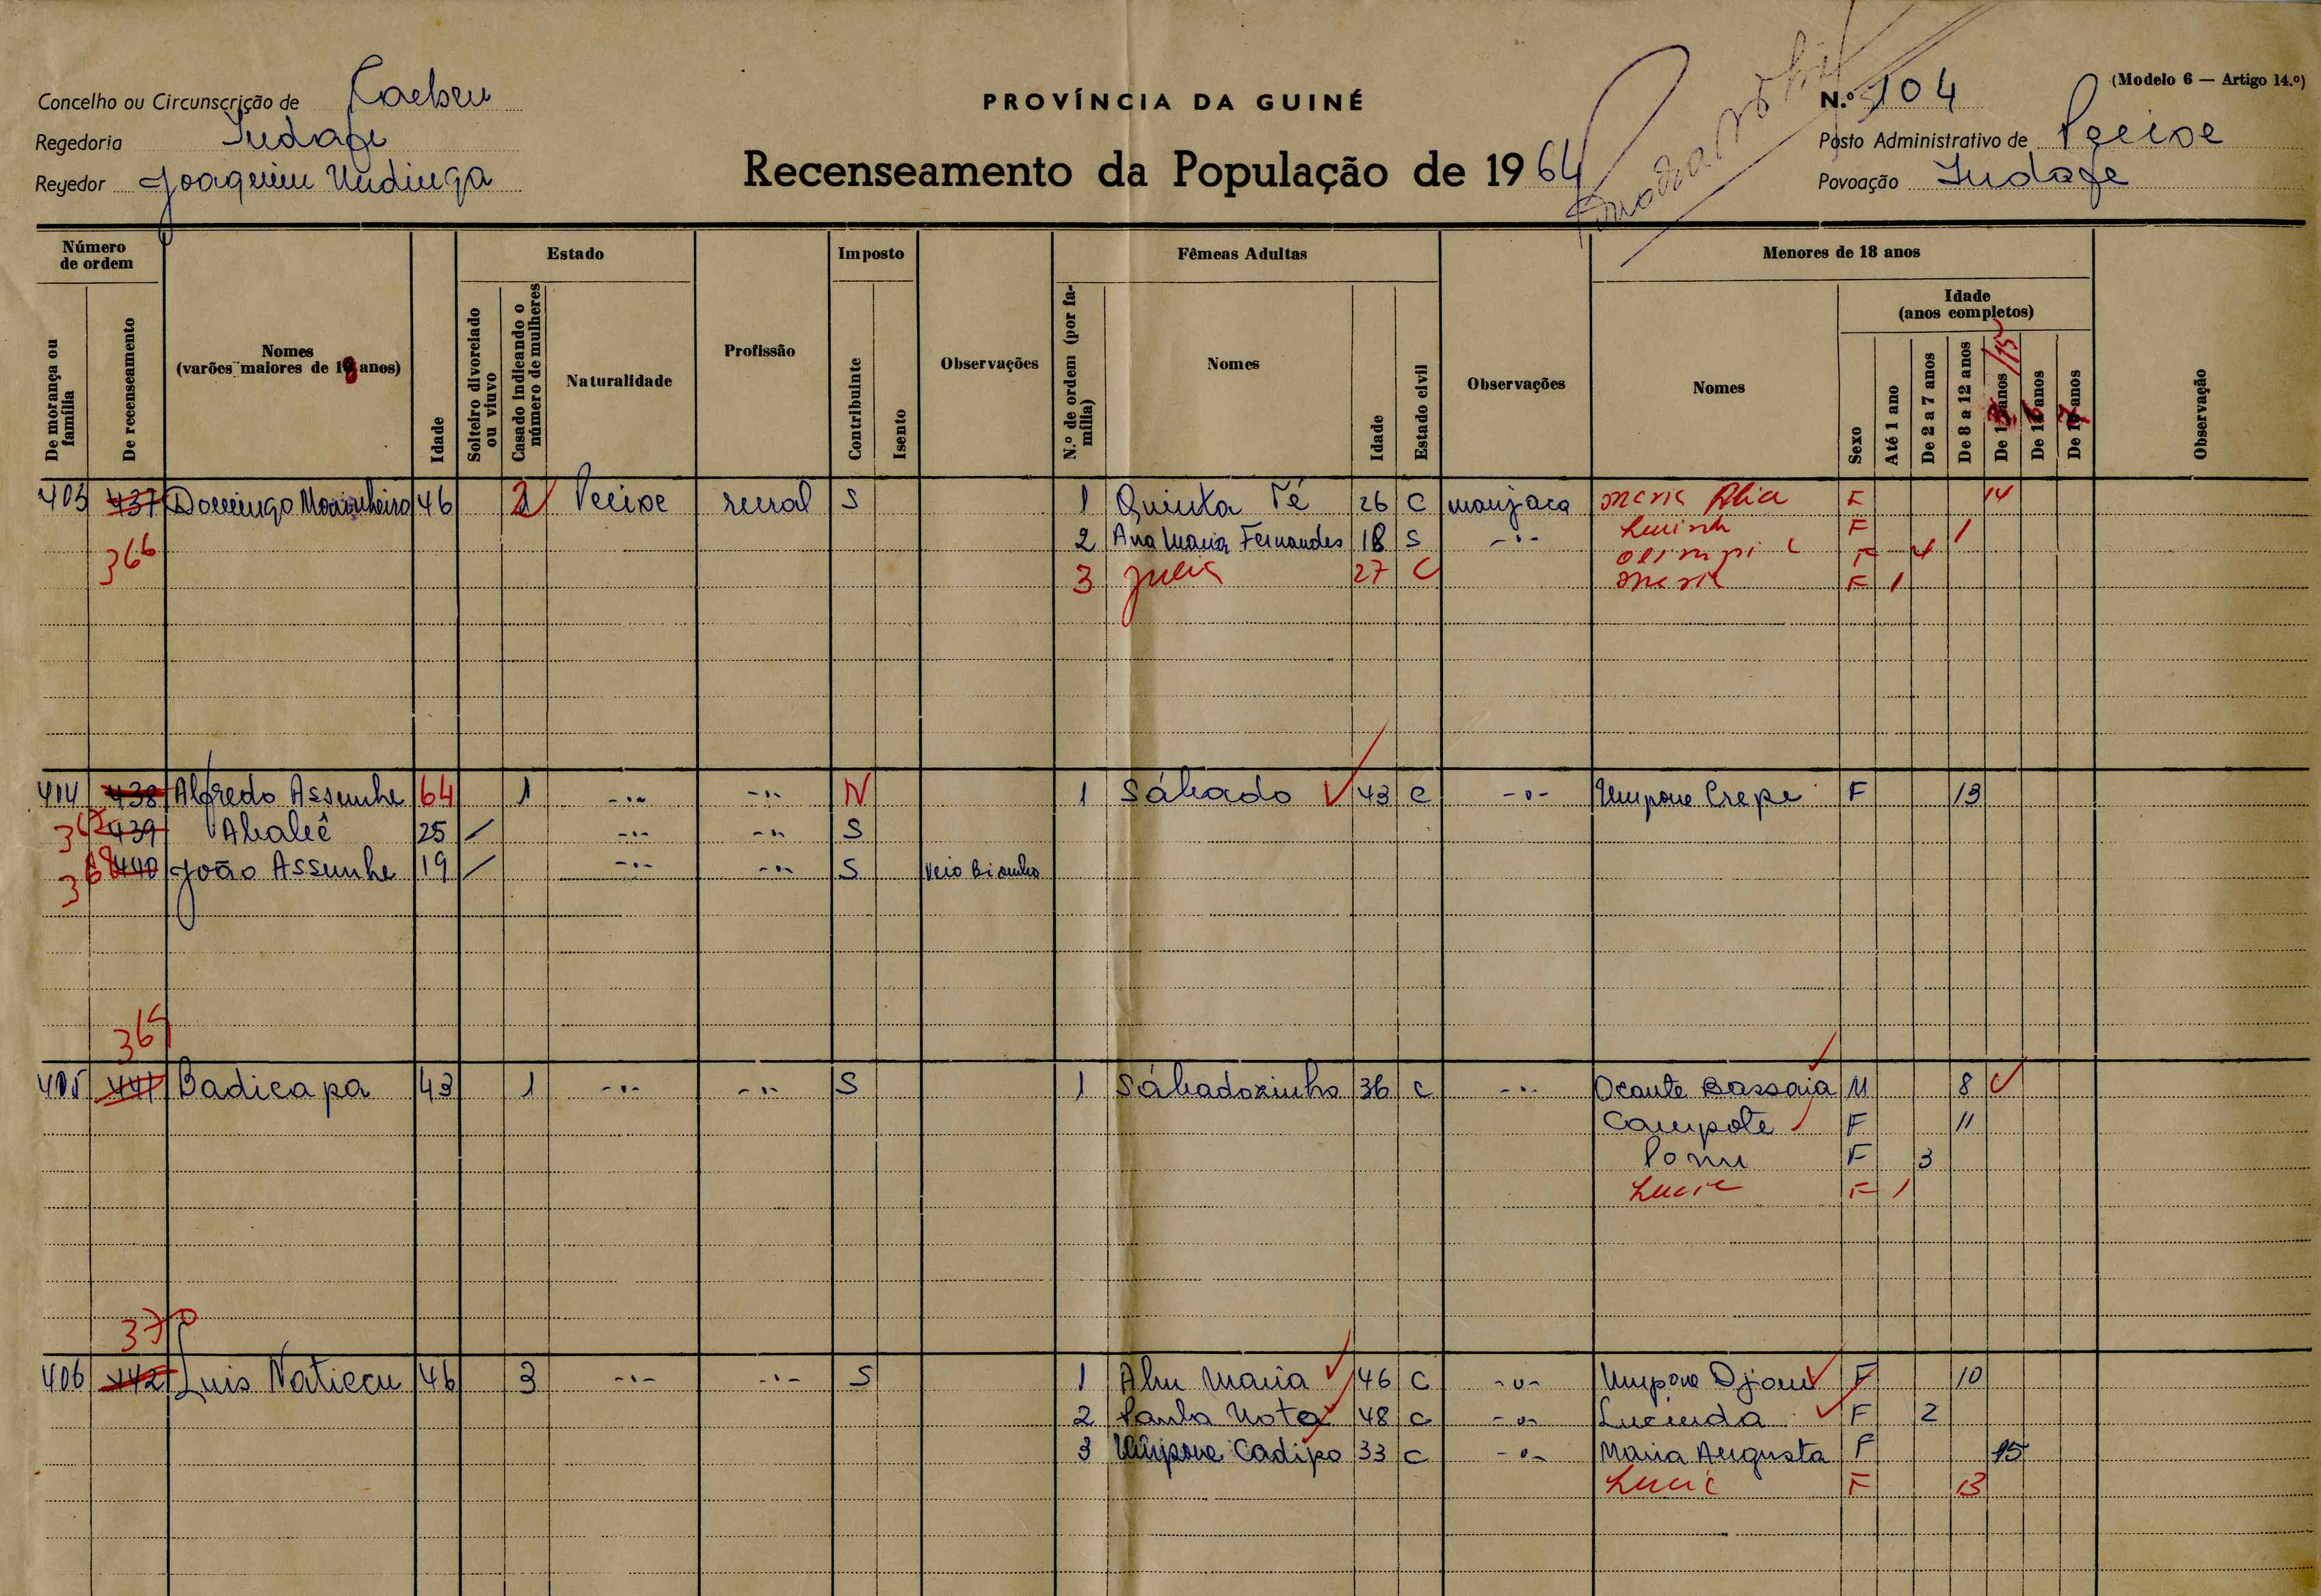 (Modelo 6 — Artigo 14.º)
Concelho ou Circunscrição de
PROVÍNCIA DA GUINÉ
N.º 104
Regedoria
Posto Administrativo de Pecixe
Regedor Joaquim
Recenseamento da População de 1964
Povoação
Número de ordem
Estado
Imposto
Fêmeas Adultas
Menores de 18 anos
Idade
(anos completos)
De morança ou família
De recenseamento
Nomes
(varões maiores de 18 anos)
Idade
Solteiro divorciado ou viuvo
Casado indicando o número de mulheres
Naturalidade
Profissão
Contribuinte
Isento
Observações
N.º de ordem (por família)
Nomes
Idade
Estado civil
Observações
Nomes
Sexo
Até 1 ano
De 2 a 7 anos
De 8 a 12 anos
De 13 anos /15
De 16 anos
De 17 anos
Observação
403 437 Domingo Marinheiro 46 2 Pecixe rural S 1 Quinta Té 26 C manjaca Maria F 14
2 Ana Maria Fernandes 18 S -·- F 1
366 3 Julia 27 C F 4
Maria F 1
438 Alfredo Assunhe 64 1 -·- -·- N 1 Sábado 43 C -·- F 13
367 439 25 / -·- -·- S
368 440 João Assunhe 19 / -·- -·- S
369
405 441 Badicapa 43 1 -·- -·- S 1 Sábadozinho 36 C -·- Ocante Bassaia M 8
Campote F 11
F 3
Lucia F 1
370
406 442 Luis Naticcu 46 3 -·- -·- S 1 Maria 46 C -·- F 10
2 Paula 48 C -·- Lucinda F 2
3 Cadipo 33 C -·- Maria Augusta F 15
F 13